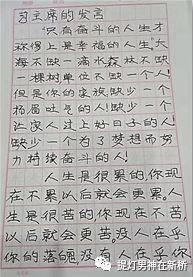 习主席的发言
只有奋斗的人生才
称得上是幸福的人生,大
海不缺一滴水,森林不缺
一棵树,单位不缺一个人!
但是你的家族缺少一个
扬眉吐气的人!缺少一个
让家人过上好日子的人!
缺少一个为了梦想而努
力持续奋斗的人!
人生是很累的,你现
在不累以后就会更累。人
生是很苦的你现在不苦
以后就会更苦。没人在乎
你的落魄,没有人在乎你
提灯男神在新桥